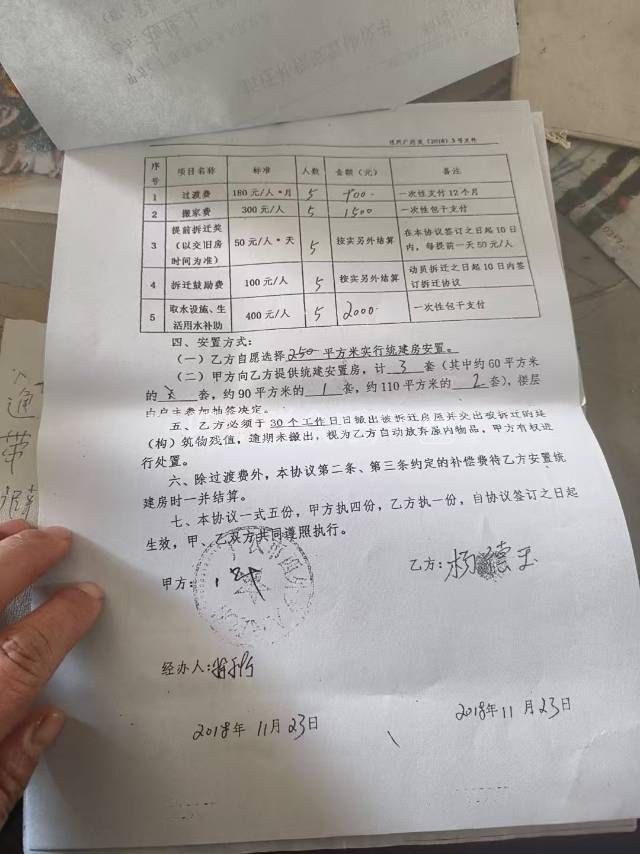 (2018) 3号文件
序号 项目名称 标准 人数 金额（元） 备注
1 过渡费 180元/人•月 5 900 一次性支付12个月
2 搬家费 300元/人 5 1500 一次性包干支付
3 提前拆迁奖（以交旧房时间为准） 50元/人•天 5 按实另外结算 在本协议签订之日起10日内，每提前一天50元/人
4 拆迁鼓励费 100元/人 5 按实另外结算 动员拆迁之日起10日内签订拆迁协议
5 取水设施、生活用水补助 400元/人 5 2000 一次性包干支付
四、安置方式：
（一）乙方自愿选择250平方米实行统建房安置。
（二）甲方向乙方提供统建安置房，计 3 套（其中约60平方米
的 套，约90平方米的 1 套，约110平方米的 2 套），楼层
由户主参加抽签决定。
五、乙方必须于30个工作日日搬出被拆迁房屋并交出被拆迁的建
（构）筑物残值，逾期未搬出，视为乙方自动放弃屋内物品，甲方有权进
行处置。
六、除过渡费外，本协议第二条、第三条约定的补偿费待乙方安置统
建房时一并结算。
七、本协议一式五份，甲方执四份，乙方执一份，自协议签订之日起
生效，甲、乙双方共同遵照执行。
甲方： 乙方：杨德玉
经办人：
2018年 11月23日 2018年11月23日
通
带